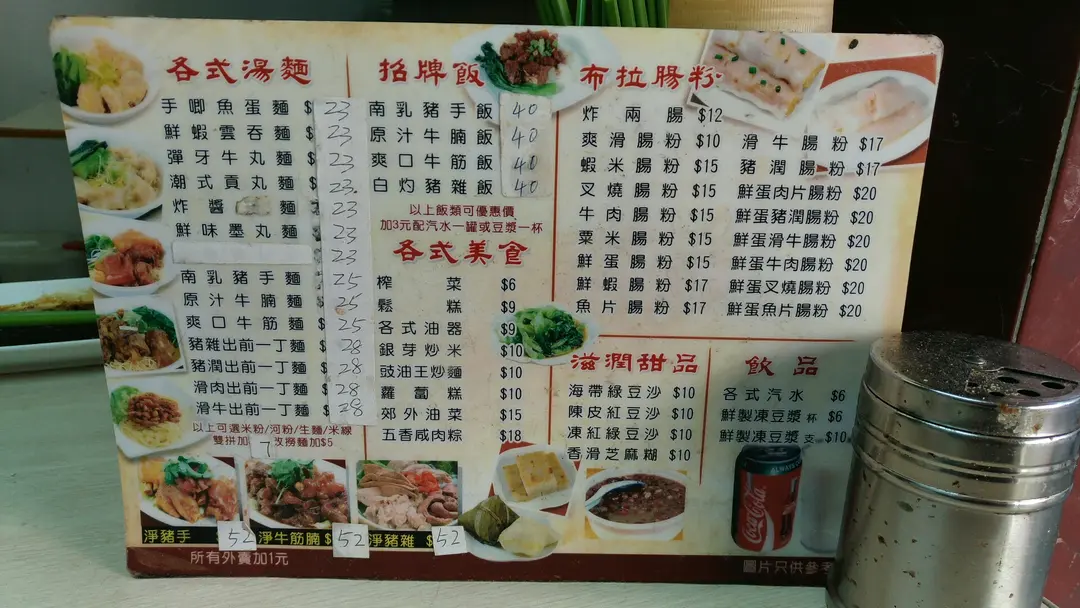 各式湯麵
手唧魚蛋麵 $ 23
鮮蝦雲吞麵 $ 23
彈牙牛丸麵 $ 23
潮式貢丸麵 $ 23
炸醬 麵 23
鮮味墨丸麵 $ 23
23
南乳豬手麵 $ 25
原汁牛腩麵 $ 25
爽口牛筋麵 $ 25
豬雜出前一丁麵 $ 28
豬潤出前一丁麵 $ 28
滑肉出前一丁麵 $ 28
滑牛出前一丁麵 $ 28
以上可選米粉/河粉/生麵/米線
雙拼加 7 改撈麵加$5
淨豬手 52
淨牛筋腩 $ 52
淨豬雜 $ 52
所有外賣加1元
招牌飯
南乳豬手飯 40
原汁牛腩飯 40
爽口牛筋飯 40
白灼豬雜飯 40
以上飯類可優惠價
加3元配汽水一罐或豆漿一杯
各式美食
榨菜 $6
鬆糕 $9
各式油器 $9
銀芽炒米 $10
豉油王炒麵 $10
蘿蔔糕 $10
郊外油菜 $15
五香咸肉粽 $18
布拉腸粉
炸兩腸 $12
爽滑腸粉 $10
蝦米腸粉 $15
叉燒腸粉 $15
牛肉腸粉 $15
粟米腸粉 $15
鮮蛋腸粉 $15
鮮蝦腸粉 $17
魚片腸粉 $17
滑牛腸粉 $17
豬潤腸粉 $17
鮮蛋肉片腸粉 $20
鮮蛋豬潤腸粉 $20
鮮蛋滑牛腸粉 $20
鮮蛋牛肉腸粉 $20
鮮蛋叉燒腸粉 $20
鮮蛋魚片腸粉 $20
滋潤甜品
海帶綠豆沙 $10
陳皮紅豆沙 $10
凍紅綠豆沙 $10
香滑芝麻糊 $10
飲品
各式汽水 $6
鮮製凍豆漿 杯 $6
鮮製凍豆漿 支 $10
Coca-Cola
圖片只供參考